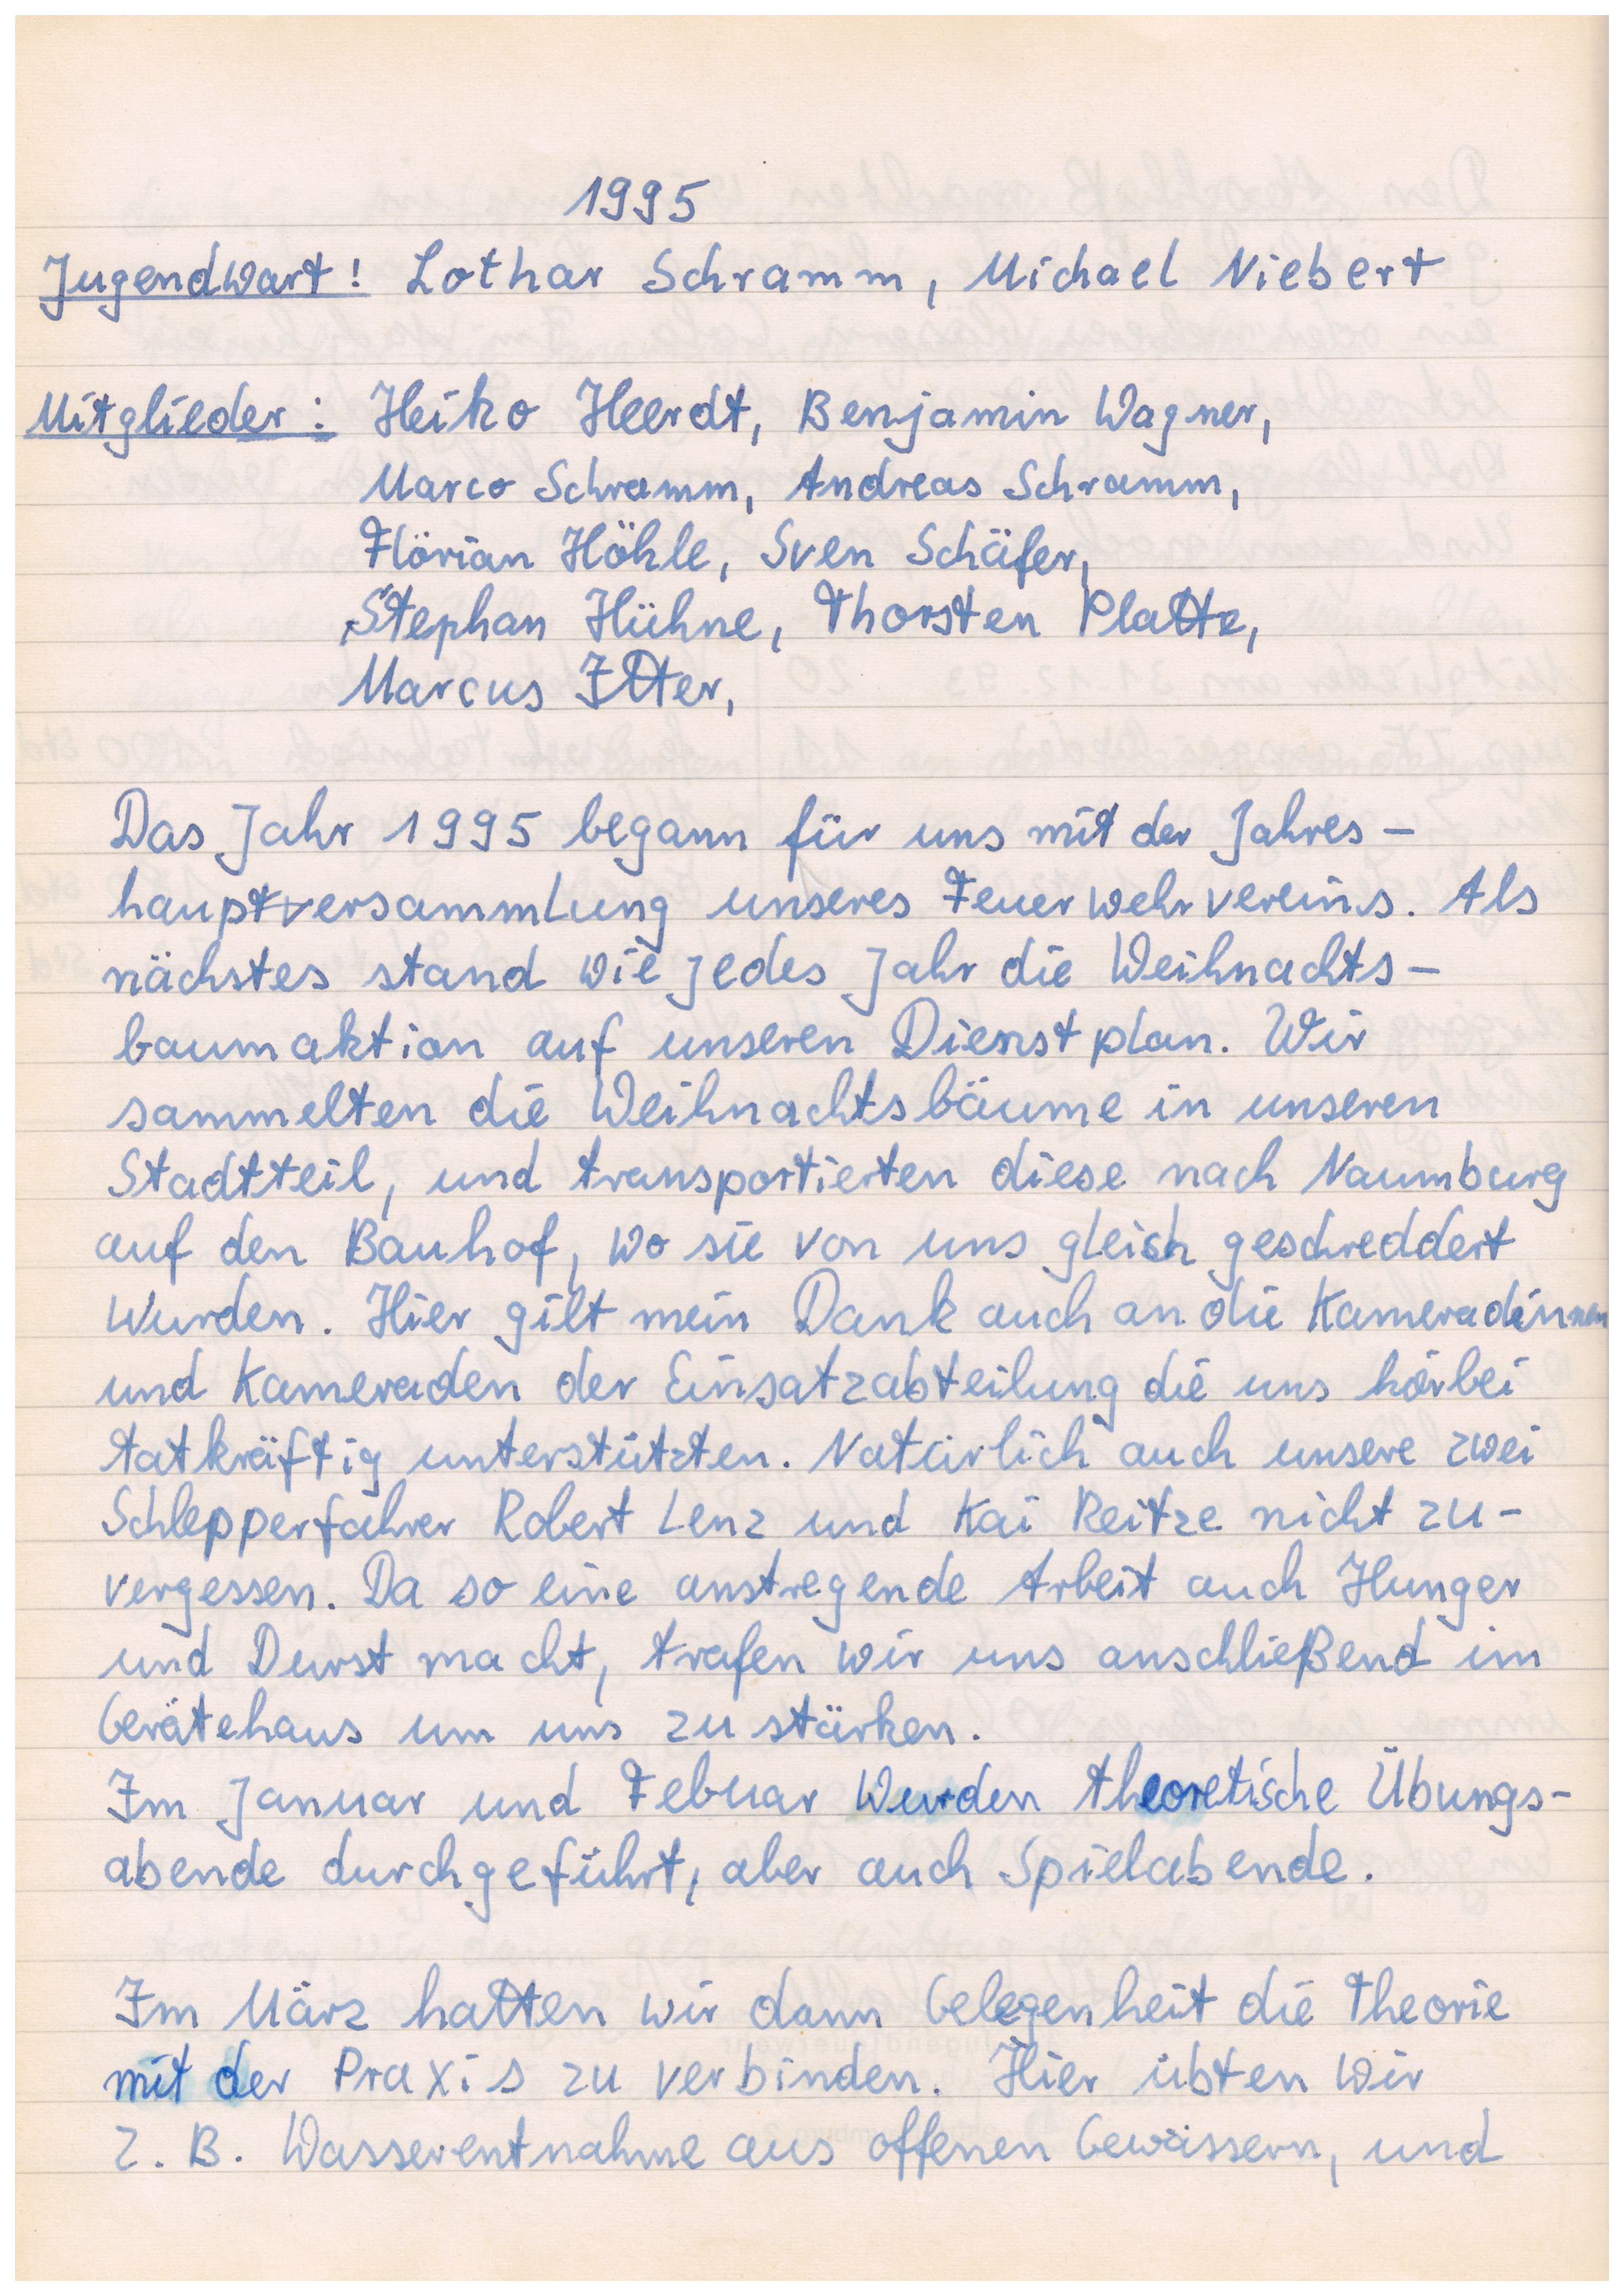 1995
Jugendwart! Lothar Schramm, Michael Niebert
Mitglieder: Heiko Heerdt, Benjamin Wagner,
Marco Schramm, Andreas Schramm,
Florian Höhle, Sven Schäfer,
Stephan Hühne, Thorsten Platte,
Marcus Itter,
Das Jahr 1995 begann für uns mit der Jahres-
hauptversammlung unseres Feuerwehrvereins. Als
nächstes stand wie jedes Jahr die Weihnachts-
baumaktion auf unseren Dienstplan. Wir
sammelten die Weihnachtsbäume in unseren
Stadtteil, und transportierten diese nach Naumburg
auf den Bauhof, wo sie von uns gleich geschreddert
wurden. Hier gilt mein Dank auch an die Kameradinnen
und Kameraden der Einsatzabteilung die uns hierbei
tatkräftig unterstützten. Natürlich auch unsere zwei
Schlepperfahrer Robert Lenz und Kai Reitze nicht zu-
vergessen. Da so eine anstregende Arbeit auch Hunger
und Durst macht, trafen wir uns anschließend im
Gerätehaus um uns zu stärken.
Im Januar und Febuar wurden theoretische Übungs-
abende durchgeführt, aber auch Spielabende.
Im März hatten wir dann Gelegenheit die Theorie
mit der Praxis zu verbinden. Hier übten wir
z. B. Wasserentnahme aus offenen Gewässern, und